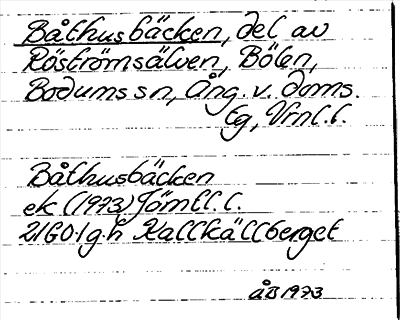 Båthusbäcken, del av
Röströmsälven, Bölen,
Bodums sn, Ång. v. doms.
lg, Vrnl. l.
Båthusbäcken
ek (1973) Jämtl. l.
21G0:1g.h Kallkällberget
åB 1973